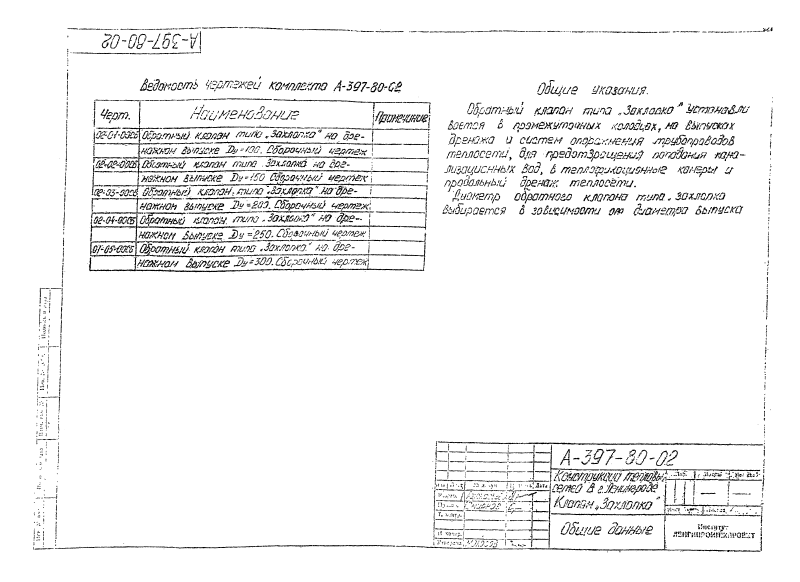 А-397-80-02
Ведомость чертежей комплекта А-397-80-02
Черт. Наименование Примечание
02-01-00СБ Обратный клапан типа „Захлопка" на дре-
нажном выпуске Dу=100. Сборочный чертеж
02-02-00СБ Обратный клапан типа „Захлопка" на дре-
нажном выпуске Dу=150 Сборочный чертеж
02-03-00СБ Обратный клапан, типа „Захлопка" на дре-
нажном выпуске Dу=200. Сборочный чертеж
02-04-00СБ Обратный клапан типа „Захлопка" на дре-
нажном выпуске Dу=250. Сборочный чертеж
Обратный клапан типа „Захлопка" на дре-
нажном выпуске Dу=300. Сборочный чертеж
Общие указания.
Обратный клапан типа „Захлопка" устанавли
вается в промежуточных колодцах, на выпусках
дренажа и систем опорожнения трубопроводов
теплосети, для предотвращения попадания кана-
лизационных вод, в теплофикационные камеры и
продольный дренаж теплосети.
Диаметр обратного клапана типа „Захлопка
выбирается в зависимости от диаметра выпуска
А-397-80-02
Конструкции тепловых
сетей в г. Ленинграде
Клапан „Захлопка"
Общие данные
Институт
ЛЕНГИПРОИНЖПРОЕКТ